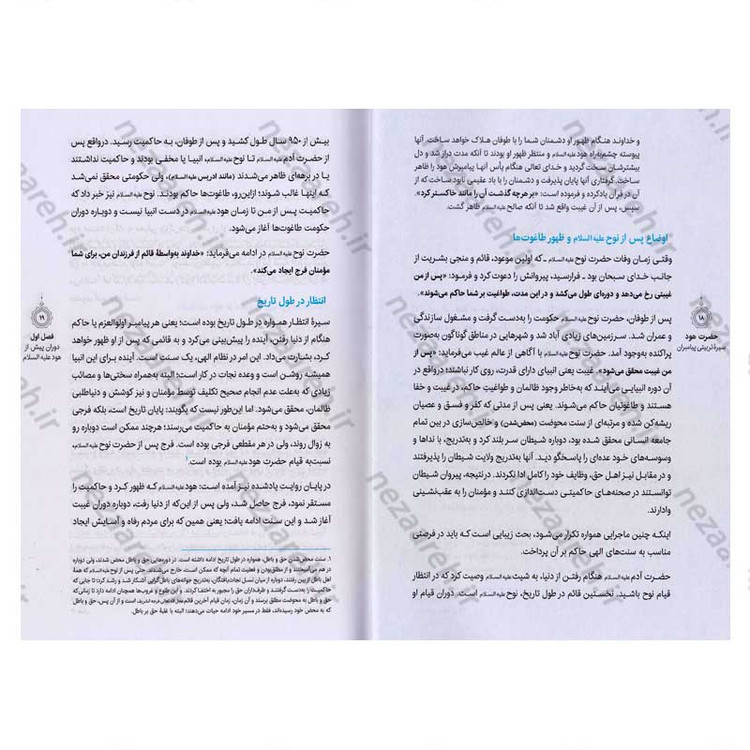 و خداوند هنگام ظهور او دشمنان شما را با طوفان هلاک خواهد ساخت. آنها
پیوسته چشم‌به‌راه هود علیه السلام و منتظر ظهور او بودند تا آنکه مدت دراز شد و دل
بیشترشان سخت گردید و خدای تعالی هنگام یأس آنها پیامبرش هود را ظاهر
ساخت. گرفتاری آنها پایان پذیرفت و دشمنان را با باد عقیمی نابود ساخت که از
آن در قرآن یادکرده و فرموده است: «بر هرچه گذشت آن را مانند خاکستر کرد».
سپس، پس از آن غیبت واقع شد تا آنکه صالح علیه السلام ظاهر گشت.
اوضاع پس از نوح علیه السلام و ظهور طاغوت‌ها
وقتی زمان وفات حضرت نوح علیه السلام ـ که اولین موعود، قائم و منجی بشریت از
جانب خدای سبحان بود ـ فرارسید، پیروانش را دعوت کرد و فرمود: «پس از من
غیبتی رخ می‌دهد و دوره‌ای طول می‌کشد و در این مدت، طواغیت بر شما حاکم می‌شوند».
پس از طوفان، حضرت نوح علیه السلام حکومت را به‌دست گرفت و مشغول سازندگی
و عمران شد. سرزمین‌های زیادی آباد شد و شهرهایی در مناطق گوناگون به‌صورت
پراکنده به‌وجود آمد. حضرت نوح علیه السلام با آگاهی از عالم غیب می‌فرماید: «پس از
من غیبت محقق می‌شود». غیبت یعنی انبیا دارای قدرت، روی کار نباشند؛ درواقع در
آن دوره انبیایی می‌آیند که به‌خاطر وجود ظالمان و طواغیتِ حاکم، در غیبت و خفا
هستند و طاغوتیان حاکم می‌شوند. یعنی پس از مدتی که کفر و فسق و عصیان
ریشه‌کن شده و مرتبه‌ای از سنت محوضت (محض‌شدن) و خالص‌سازی در بین تمام
جامعه انسانی محقق شده بود، دوباره شیطان سر بلند کرد و به‌تدریج، با نداها و
وسوسه‌های خود عده‌ای را پاسخگو دید. آنها به‌تدریج ولایت شیطان را پذیرفتند
و در مقابل نیز اهل حق، وظایف خود را کامل ادا نکردند. درنتیجه، پیروان شیطان
توانستند در صحنه‌های حاکمیتی دست‌اندازی کنند و مؤمنان را به عقب‌نشینی
وادارند.
اینکه چنین ماجرایی همواره تکرار می‌شود، بحث زیبایی است که باید در فرصتی
مناسب به سنت‌های الهی حاکم بر آن پرداخت.
حضرت آدم علیه السلام هنگام رفتن از دنیا، به شیث علیه السلام وصیت کرد که در انتظار
قیام نوح باشید. نخستین قائم در طول تاریخ، نوح علیه السلام است. دوران قیام او
۱۸
حضرت هود
سیرۀ تربیتی پیامبران
بیش از ۹۵۰ سال طول کشید و پس از طوفان، به حاکمیت رسید. درواقع پس
از حضرت آدم علیه السلام تا نوح علیه السلام، انبیا یا مخفی بودند و حاکمیت نداشتند
یا در برهه‌ای ظاهر می‌شدند (مانند ادریس علیه السلام)، ولی حکومتی محقق نمی‌شد
که اینها غالب شوند؛ ازاین‌رو، طاغوت‌ها حاکم بودند. نوح علیه السلام نیز خبر داد که
حاکمیت پس از من تا زمان هود علیه السلام در دست انبیا نیست و دوباره دوران
حکومت طاغوت‌ها آغاز می‌شود.
حضرت نوح علیه السلام در ادامه می‌فرماید: «خداوند به‌واسطۀ قائم از فرزندان من، برای شما
مؤمنان فرج ایجاد می‌کند».
انتظار در طول تاریخ
سیرۀ انتظار همواره در طول تاریخ بوده است؛ یعنی هر پیامبر اولوالعزم یا حاکم
هنگام از دنیا رفتن، آینده را پیش‌بینی می‌کرد و به قائمی که پس از او ظهور خواهد
کرد، بشارت می‌داد. این امر در نظام الهی، یک سنت است. آینده برای این انبیا
همیشه روشن است و وعده نجات در کار است؛ البته به‌همراه سختی‌ها و مصائب
زیادی که به‌علت عدم انجام صحیح تکلیف توسط مؤمنان و نیز کوشش و دنیاطلبی
ظالمان، محقق می‌شود. اما این‌طور نیست که بگویند: پایان تاریخ است، بلکه فرجی
محقق می‌شود و به‌حتم مؤمنان به حاکمیت می‌رسند؛ هرچند ممکن است دوباره رو
به زوال روند، ولی در هر مقطعی فرجی بوده است. فرج پس از حضرت نوح علیه السلام،
نسبت‌به قیام حضرت هود علیه السلام بوده است.۱
در پایان روایت یادشده نیز آمده است: هود علیه السلام که ظهور کرد و حاکمیت را
مستقر نمود، فرج حاصل شد، ولی پس از این‌که از دنیا رفت، دوباره دوران غیبت
آغاز شد و این سنت ادامه یافت؛ یعنی همین که برای مردم رفاه و آسایش ایجاد
۱. سنت محض شدن حق و باطل، همواره در طول تاریخ ادامه داشته است. در دوره‌هایی حق و باطل محض شدند، ولی دوباره
به محض خود رسیده‌اند، فقط در مسیر خود ادامه حیات می‌دهند؛ البته با غلبۀ حق بر باطل.
۱۹
فصل اول
دوران پیش از
هود علیه السلام
nezareh.ir